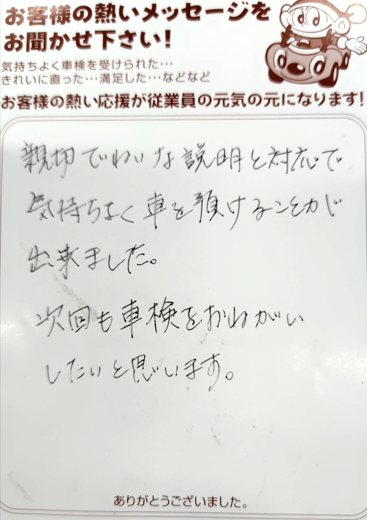 お客様の熱いメッセージを
お聞かせ下さい！
気持ちよく車検を受けられた…
きれいに直った…満足した…などなど
お客様の熱い応援が従業員の元気の元になります！
親切でていねいな説明と対応で
気持ちよく車を預けることが
出来ました。
次回も車検をおねがい
したいと思います。
ありがとうございました。